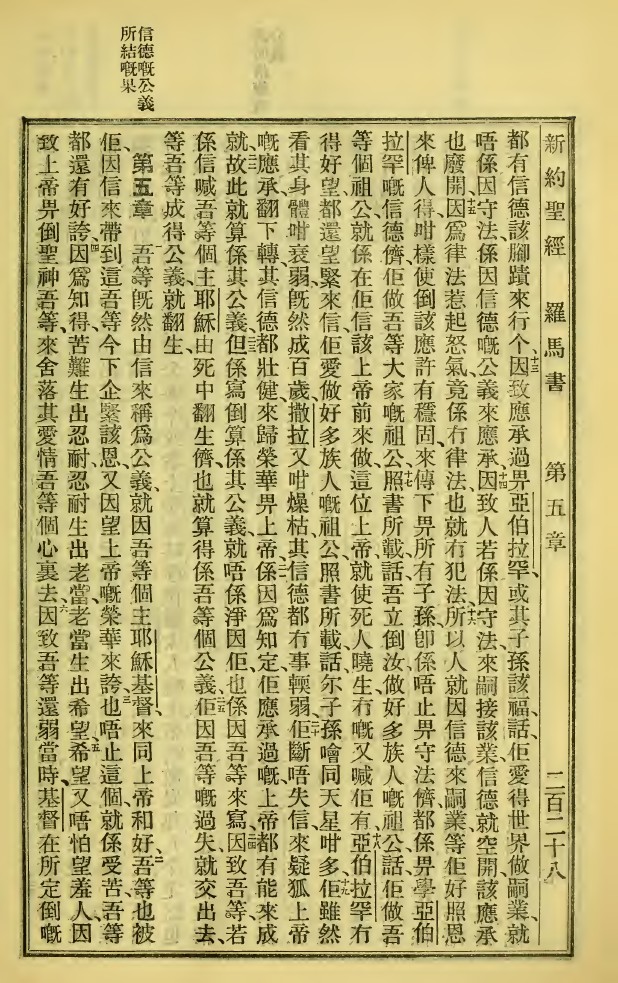 新約聖經 羅馬書 第五章 二百二十八
信德嘅公義
所結嘅果
都有信德該腳蹟來行个、十三因致應承過畀亞伯拉罕、或其子孫該福話、佢愛得世界做嗣業、就
唔係因守法、係因信德嘅公義來應承、十四因致人若係因守法、來嗣接該業、信德就空開、該應承
也廢開、十五因爲律法惹起怒氣、竟係冇律法、也就冇犯法、十六所以人就因信德來嗣業、等佢好照恩
來俾人得、咁樣使倒該應許有穩固、來傳下畀所有子孫、卽係唔止畀守法儕、都係畀學亞伯
拉罕嘅信德儕、佢做吾等大家嘅祖公、十七照書所載話、吾立倒汝做好多族人嘅祖公、話佢做吾
等個祖公、就係在佢信該上帝前來做、這位上帝、就使死人曉生、冇嘅又喊佢有、十八亞伯拉罕冇
得好望、都還望緊來信、佢愛做好多族人嘅祖公、照書所載話、尔子孫噲同天星咁多、十九佢雖然
看其身體咁衰弱、旣然成百歲、撒拉又咁燥枯、其信德都冇事輭弱、二十佢斷唔失信來疑狐上帝
嘅應承、翻下轉其信德都壯健、來歸榮華畀上帝、二一係因爲知定佢應承過嘅、上帝都有能來成
就、二二故此就算係其公義、二三但係寫倒算係其公義、就唔係淨因佢、二四也係因吾等來寫、因致吾等若
係信喊吾等個主耶穌、由死中翻生儕、也就算得係吾等個公義、二五佢因吾等嘅過失、就交出去、
等吾等成得公義、就翻生、
第五章 一吾等旣然由信來稱爲公義、就因吾等個主耶穌基督、來同上帝和好、二吾等也被
佢因信來帶到這、吾等今下企緊該恩、又因望上帝嘅榮華來誇、三也唔止這個、就係受苦、吾等
都還有好誇、因爲知得、苦難生出忍耐、四忍耐生出老當、老當生出希望、五希望又唔怕望羞人、因
致上帝畀倒聖神吾等、來舍落其愛情吾等個心裏去、六因致吾等還弱當時、基督在所定倒嘅